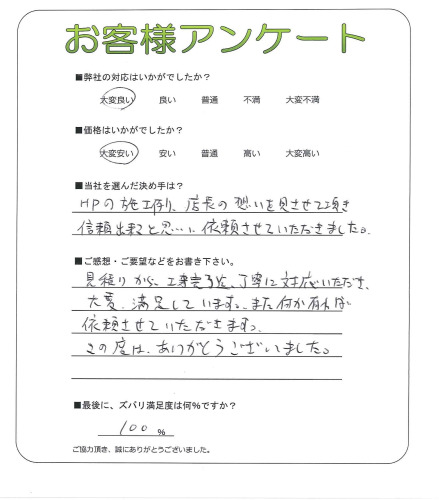 お客様アンケート
■弊社の対応はいかがでしたか？
大変良い 良い 普通 不満 大変不満
■価格はいかがでしたか？
大変安い 安い 普通 高い 大変高い
■当社を選んだ決め手は？
HPの施工例、店長の想いを見させて頂き
信頼出来ると思い、依頼させていただきました。
■ご感想・ご要望などをお書き下さい。
見積りから、工事完了迄、丁寧に対応いただき、
大変、満足しています。また何か有れば
依頼させていただきます。
この度は、ありがとうございました。
■最後に、ズバリ満足度は何%ですか？
100 %
ご協力頂き、誠にありがとうございました。